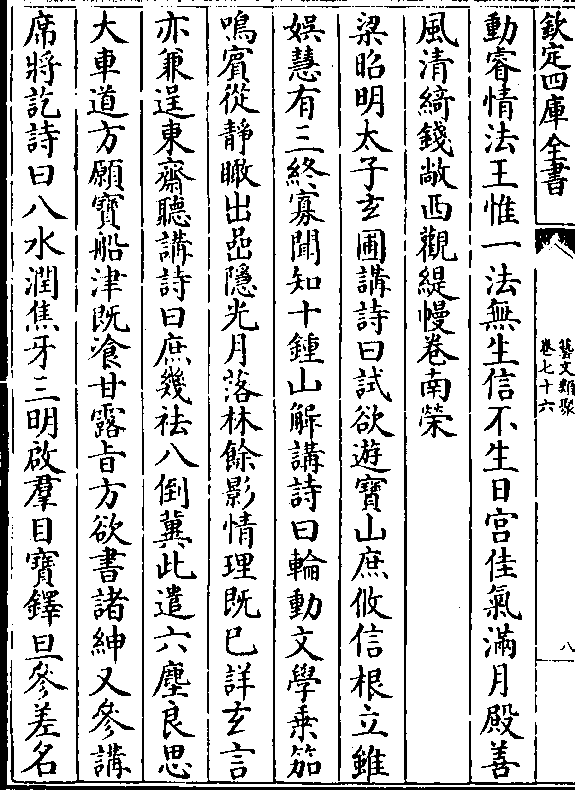 欽定四庫全書
藝文類聚
卷七十六
八
動睿情法王惟一法無生信不生日宮佳氣滿月殿善
風清綺錢敞西觀緹幔卷南榮
梁昭明太子玄圃講詩曰試欲遊寶山庶攸信根立雖
娛慧有三終寡聞知十鍾山解講詩曰輪動文學乗笳
鳴賓從靜瞰出嵒隱光月落林餘影情理既已詳玄言
亦兼逞東齋聽講詩曰庶幾祛八倒冀此遣六塵良思
大車道方願寶船津既飡甘露旨方欲書諸紳又參講
席將訖詩曰八水潤焦牙三明啟羣目寶鐸旦參差名